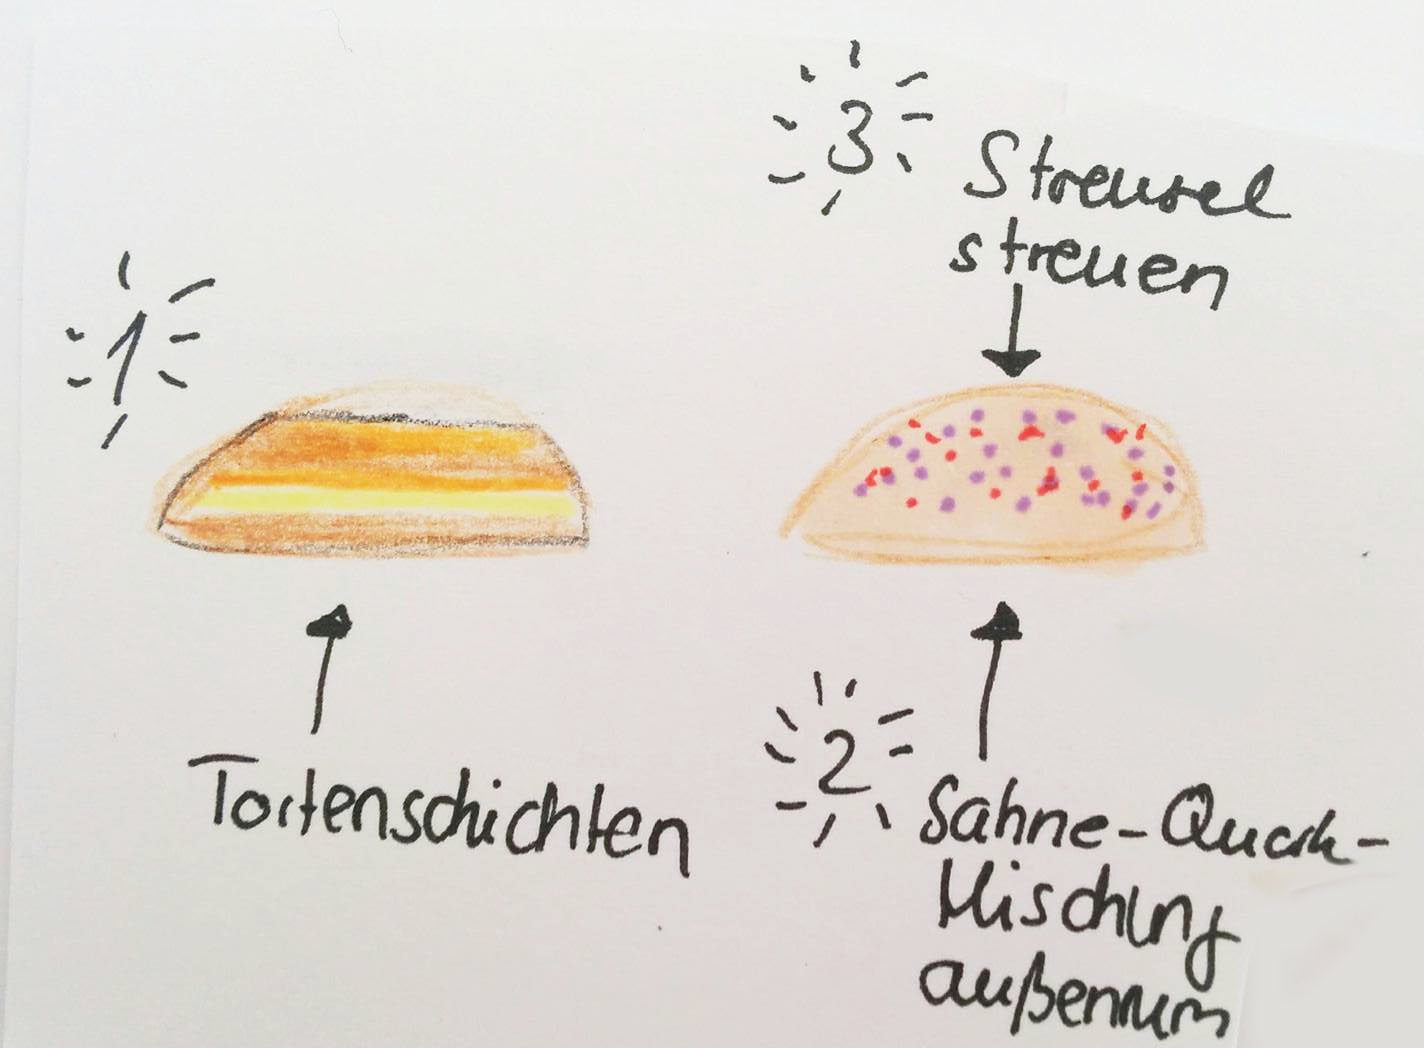 1
Tortenschichten
2
Sahne-Quark-
Mischung
außenrum
3
Streusel
streuen